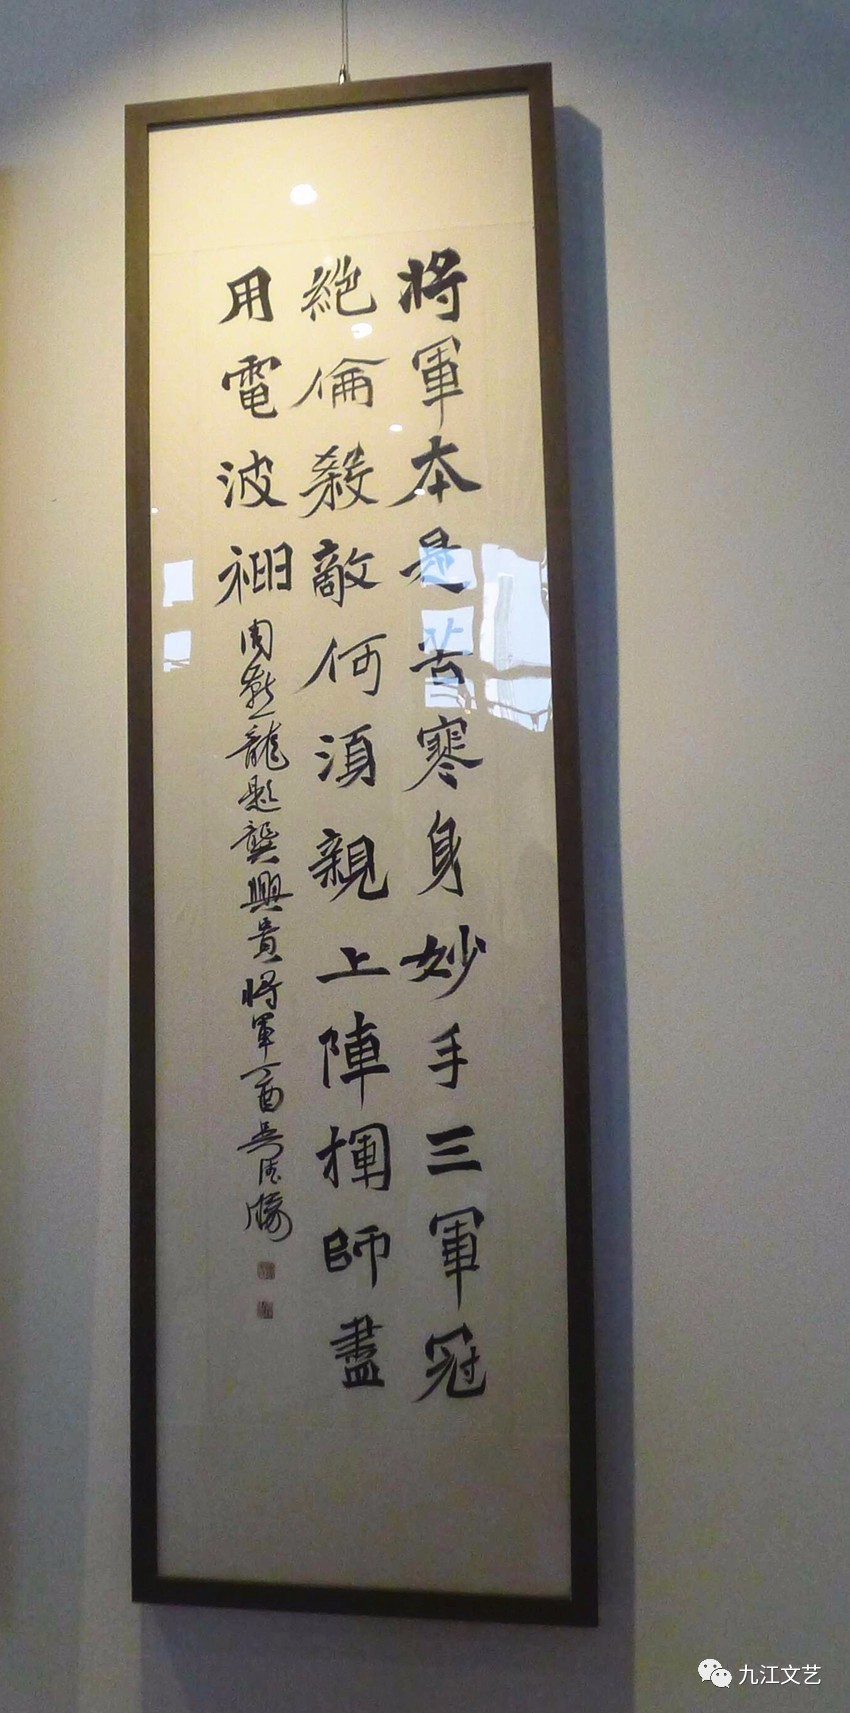 将軍本是苦寒身妙手三軍冠
絕倫殺敵何須親上陣揮師盡
用電波神
周龍題龔興貴将軍丁酉吳勝
九江文艺